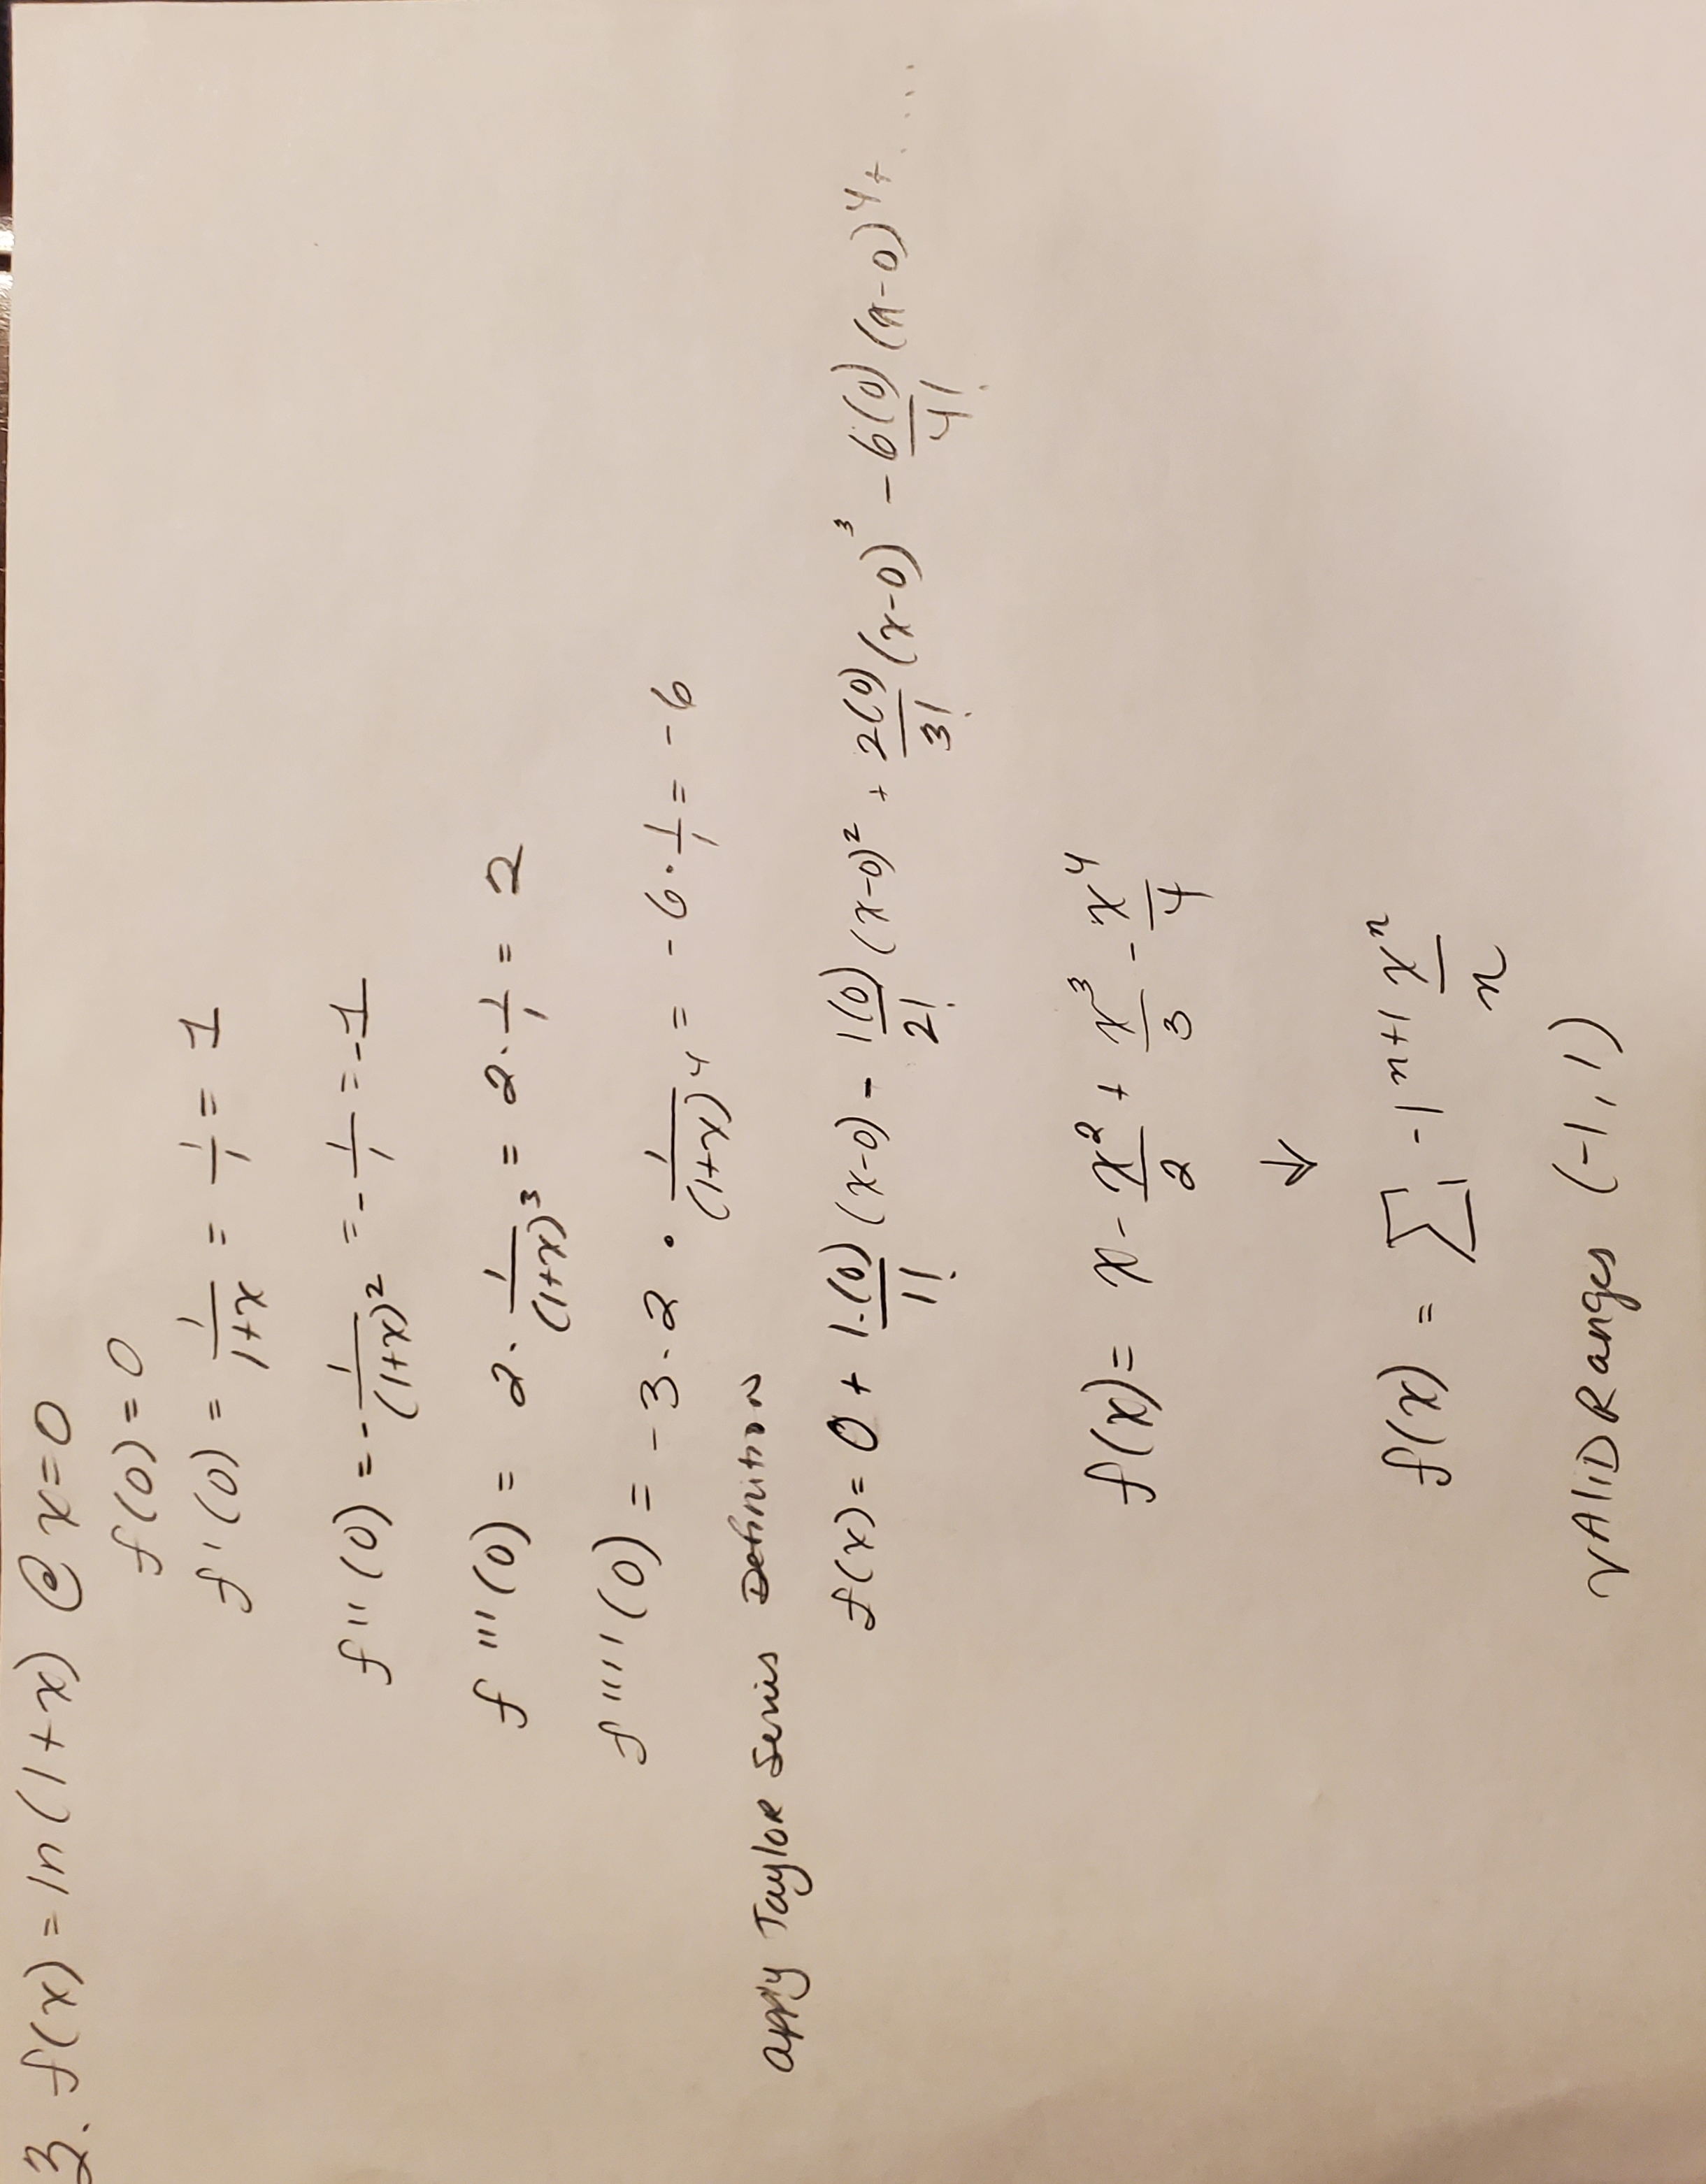 3. f(x) = ln(1+x) @ x=0
f(0) = 0
f'(0) = 1/(1+x) = 1/1 = 1
f''(0) = - 1/(1+x)² = - 1/1 = -1
f'''(0) = 2 · 1/(1+x)³ = 2 · 1/1 = 2
f''''(0) = -3 · 2 · 1/(1+x)⁴ = -6 · 1/1 = -6
apply Taylor Series Definition
f(x) = 0 + 1·(0)/1! (x-0) - 1(0)/2! (x-0)² + 2(0)/3! (x-0)³ - 6(0)/4! (x-0)⁴ + ....
f(x) = x - x²/2 + x³/3 - x⁴/4
↓
f(x) = Σ₁ -1ⁿ⁺¹ xⁿ/n
VAliD Ranges (-1, 1)